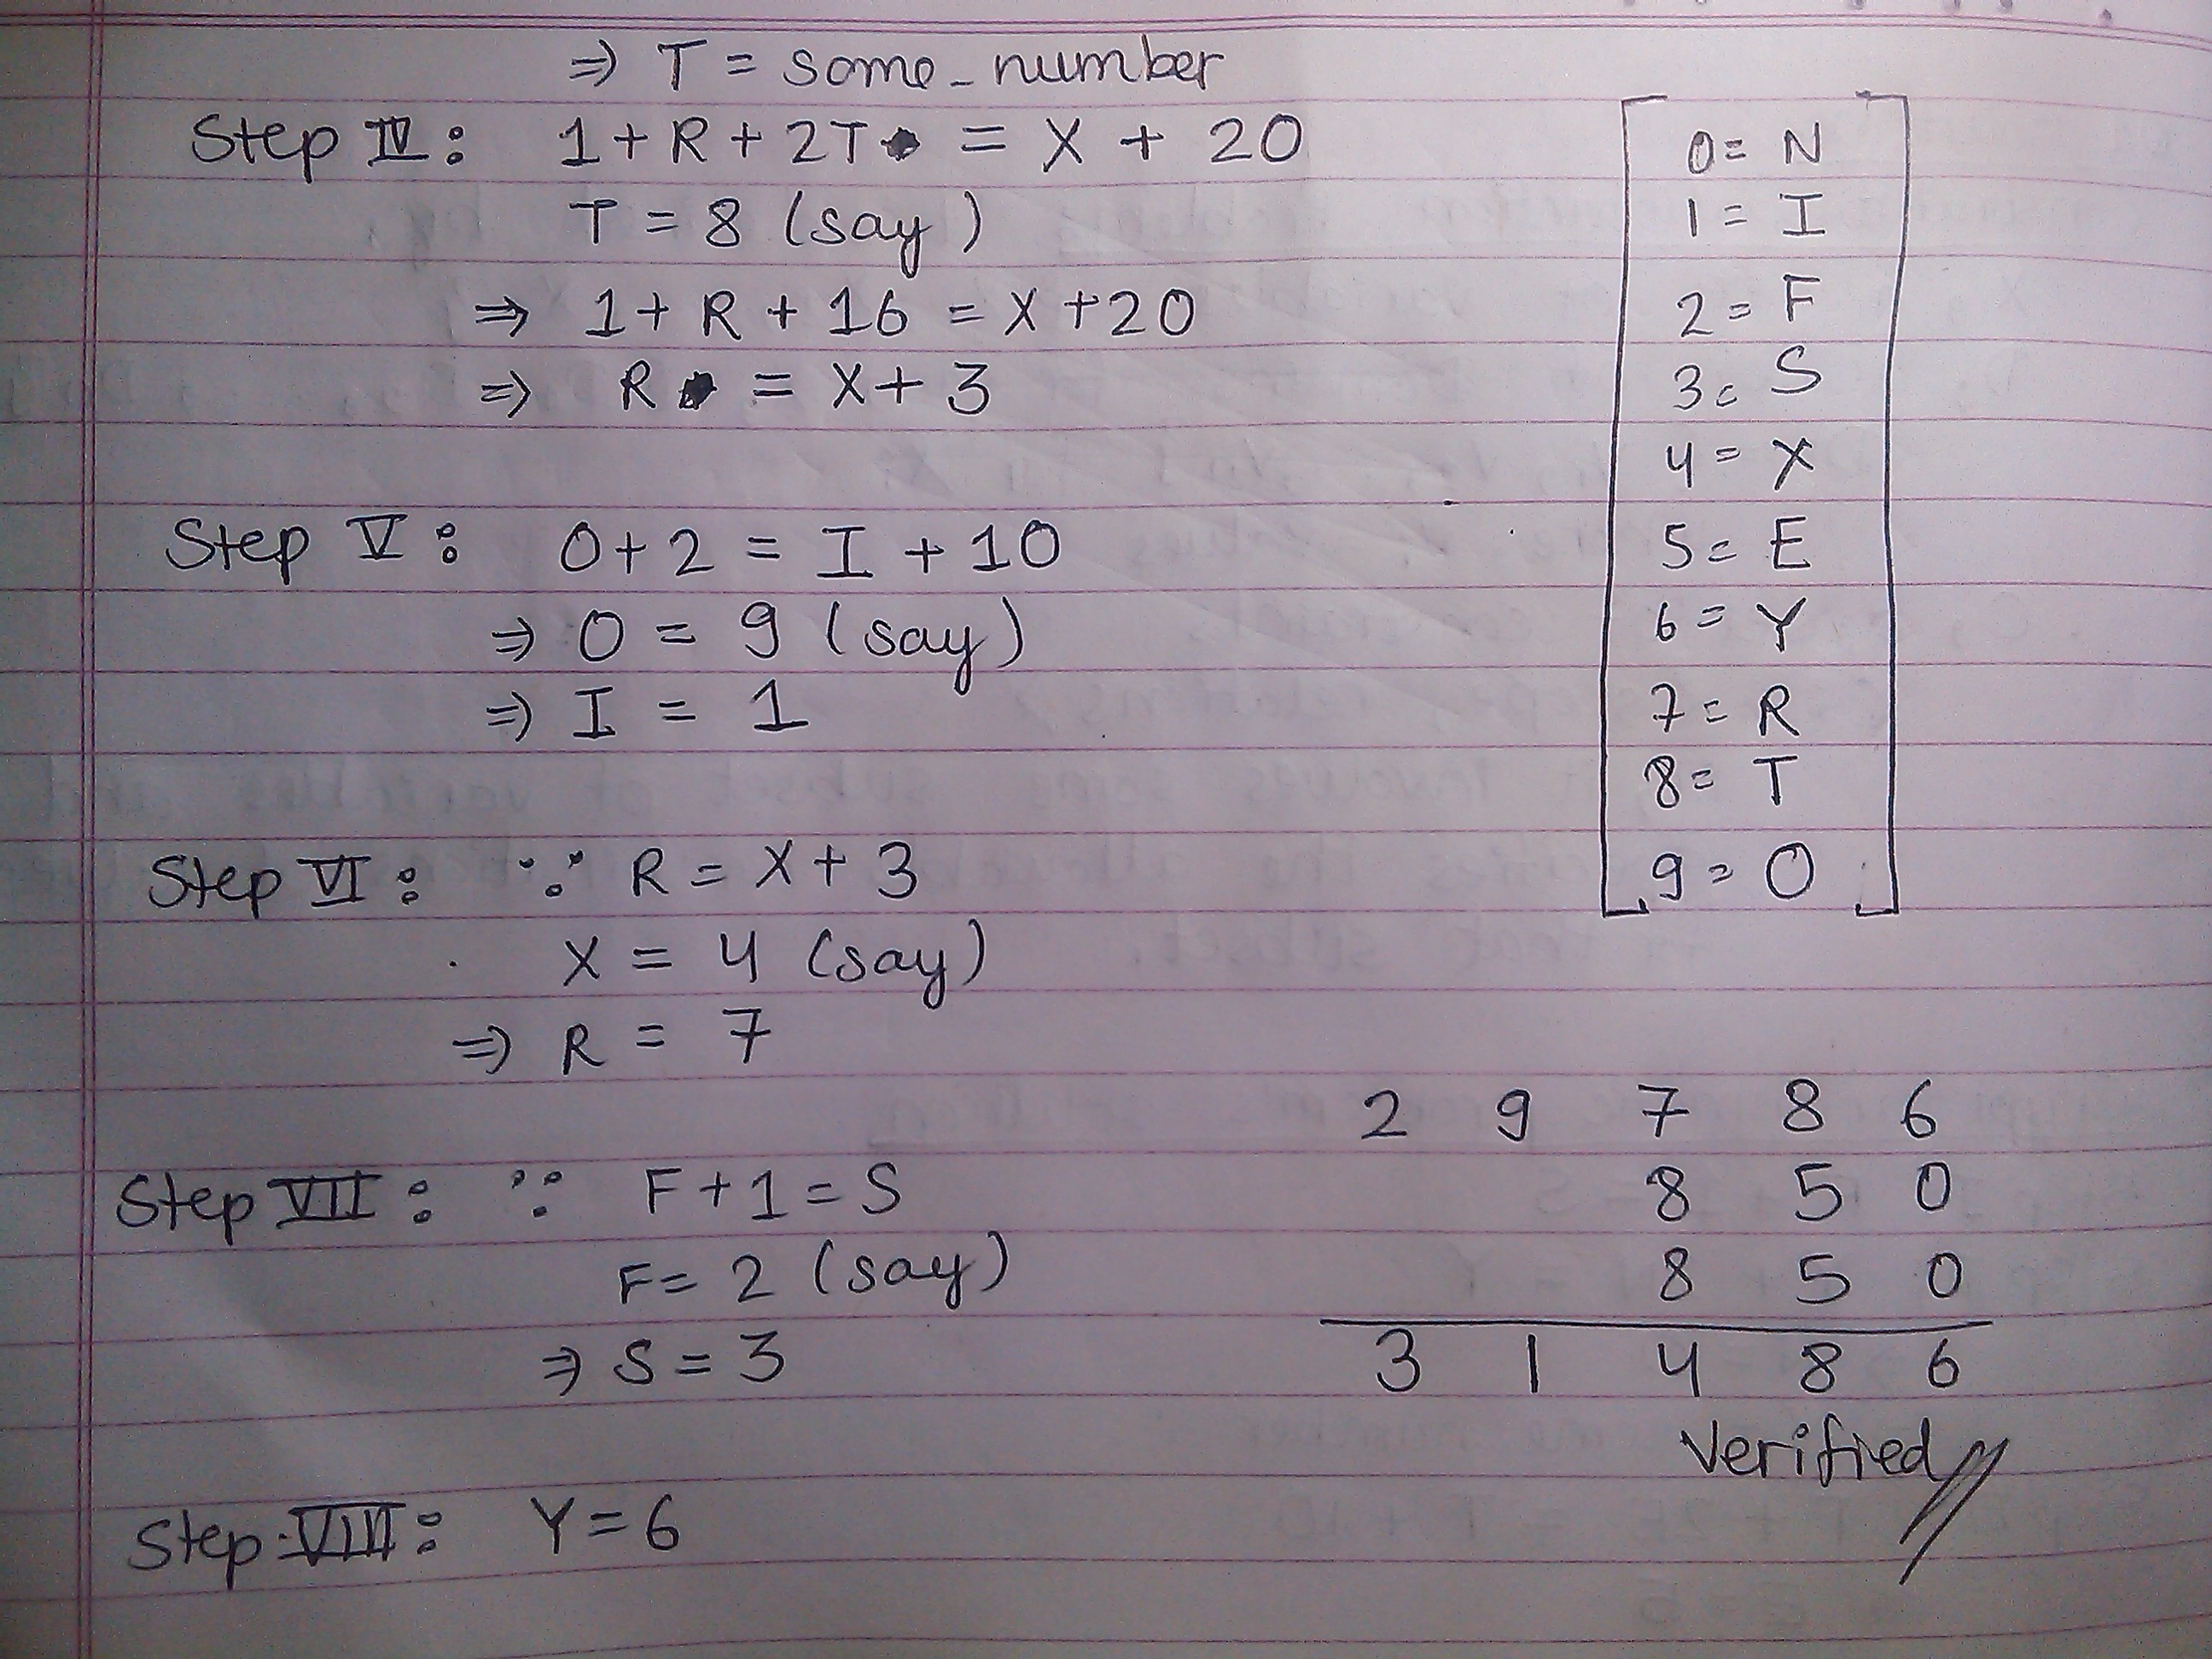 ⇒ T = some_number
Step IV: 1 + R + 2T = X + 20
T = 8 (say)
⇒ 1 + R + 16 = X + 20
⇒ R = X + 3
Step V: O + 2 = I + 10
⇒ O = 9 (say)
⇒ I = 1
Step VI: ∵ R = X + 3
X = 4 (say)
⇒ R = 7
Step VII: ∵ F + 1 = S
F = 2 (say)
⇒ S = 3
Step VIII: Y = 6
0 = N
1 = I
2 = F
3 = S
4 = X
5 = E
6 = Y
7 = R
8 = T
9 = O
2 9 7 8 6
8 5 0
8 5 0
3 1 4 8 6
Verified